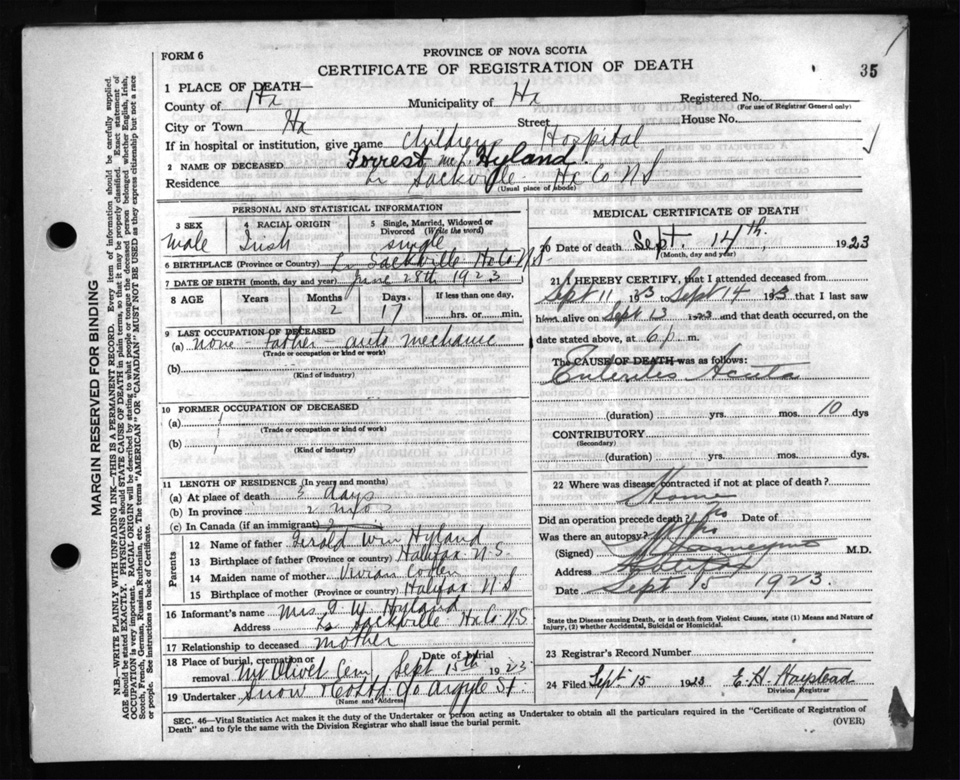 FORM 6
PROVINCE OF NOVA SCOTIA
CERTIFICATE OF REGISTRATION OF DEATH
35
1 PLACE OF DEATH—
County of Hx Municipality of Hx Registered No.
(For use of Registrar General only)
City or Town Hx Street House No.
If in hospital or institution, give name Childrens Hospital
2 NAME OF DECEASED Forrest Hyland
Residence Lr Sackville Hx Co N S
(Usual place of abode)
PERSONAL AND STATISTICAL INFORMATION
3 SEX Male
4 RACIAL ORIGIN Irish
5 Single, Married, Widowed or Divorced (Write the word) single
6 BIRTHPLACE (Province or Country) Lr Sackville Hx Co N S
7 DATE OF BIRTH (month, day and year) June 28th 1923
8 AGE Years Months 2 Days 17 If less than one day, hrs. or min.
9 LAST OCCUPATION OF DECEASED
(a) none - father - auto mechanic
(Trade or occupation or kind or work)
(b)
(Kind of industry)
10 FORMER OCCUPATION OF DECEASED
(a)
(Trade or occupation or kind of work)
(b)
(Kind of industry)
11 LENGTH OF RESIDENCE (In years and months)
(a) At place of death 3 days
(b) In province 2 mo
(c) In Canada (if an immigrant)
Parents
12 Name of father Gerald Wm Hyland
13 Birthplace of father (Province or country) Halifax N.S.
14 Maiden name of mother Vivian
15 Birthplace of mother (Province or country) Halifax N S
16 Informant's name Mrs G W Hyland
Address Lr Sackville Hx Co N.S.
17 Relationship to deceased mother
18 Place of burial, cremation or removal Mt Olivet Cem Date of burial Sept 15th 1923
19 Undertaker Snow & Co Ltd 90 Argyle St.
(Name and Address)
MEDICAL CERTIFICATE OF DEATH
20 Date of death Sept. 14th, 1923
(Month, day and year)
21 I HEREBY CERTIFY, that I attended deceased from
Sept 11 1923 to Sept 14 1923 that I last saw
him alive on Sept 13 1923 and that death occurred, on
date stated above, at 6 p. m.
The CAUSE OF DEATH was as follows:
Enteritis Acuta
(duration) yrs. mos. 10 dys
CONTRIBUTORY
(Secondary)
(duration) yrs. mos. dys.
22 Where was disease contracted if not at place of death?
Home
Did an operation precede death? No Date of
Was there an autopsy? No
(Signed) M.D.
Address Halifax
Date Sept 15 1923.
State the Disease causing Death, or in death from Violent Causes, state (1) Means and Nature of Injury, (2) whether Accidental, Suicidal or Homicidal.
23 Registrar's Record Number
24 Filed Sept. 15 1923 E. H. Haystead
Division Registrar
SEC. 46—Vital Statistics Act makes it the duty of the Undertaker or person acting as Undertaker to obtain all the particulars required in the "Certificate of Registration of
Death" and to fyle the same with the Division Registrar who shall issue the burial permit. (OVER)
MARGIN RESERVED FOR BINDING
N.B.—WRITE PLAINLY WITH UNFADING INK—THIS IS A PERMANENT RECORD. Every item of information should be carefully supplied.
AGE should be stated EXACTLY. PHYSICIANS should STATE CAUSE OF DEATH in plain terms, so that it may be properly classified. Exact statement of
OCCUPATION is very important. RACIAL ORIGIN will be described by stating to what people or tongue the deceased person belonged whether English, Irish,
Scotch, French, German, Russian, Ruthenian, etc. The terms "AMERICAN" OR "CANADIAN" MUST NOT BE USED as they express citizenship but not a race
or people. See instructions on back of Certificate.